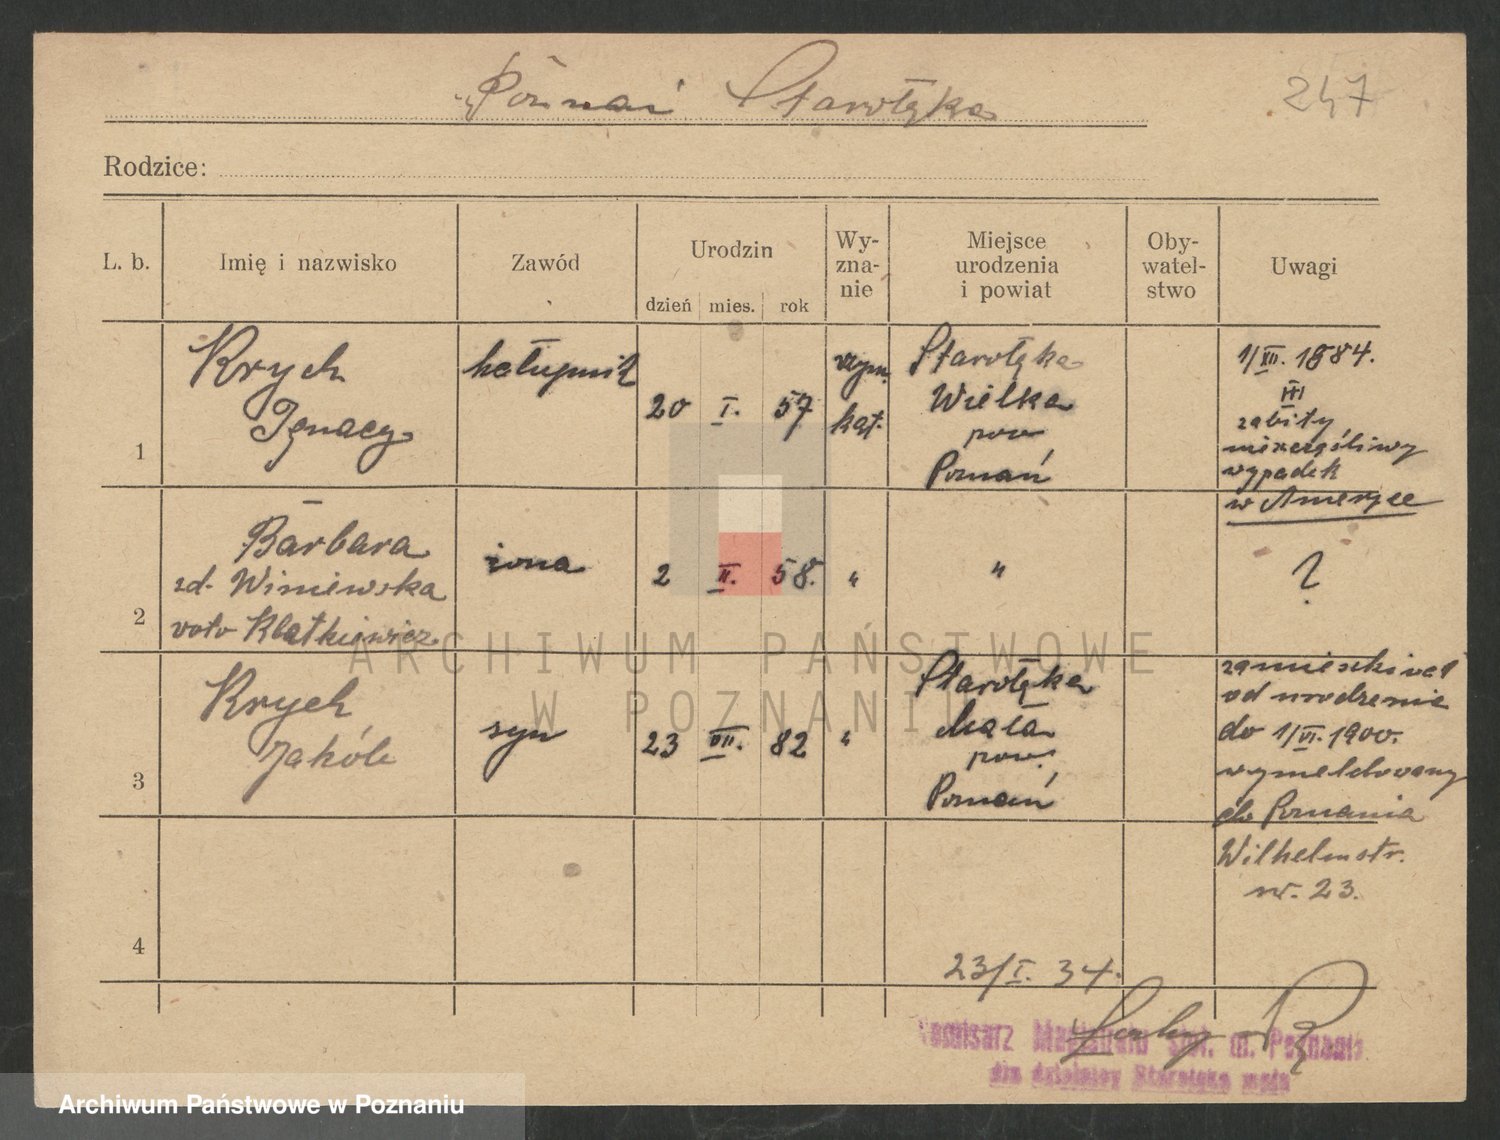 Poznań Starołęka
247
Rodzice:
L. b.
Imię i nazwisko
Zawód
Urodzin
dzień
mies.
rok
Wy-
zna-
nie
Miejsce
urodzenia
i powiat
Oby-
watel-
stwo
Uwagi
1
Krych
Ignacy
hałupnik
20
I.
57
rzym.
kat.
Starołęka
Wielka
pow
Poznań
1/XII. 1884.
III
zabity
nieszczęśliwy
wypadek
w Ameryce
2
–
Barbara
zd. Winiewska
voto Klatkiewicz
żona
2
II.
58.
"
"
?
3
Krych
Jakób
syn
23
VII.
82
"
Starołęka
Mała
pow.
Poznań
zamieszkiwał
od urodzenia
do 1/VI. 1900.
wymeldowany
do Poznania
Wilhelmstr.
nr. 23.
4
23/I. 34.
Komisarz Magistratu stoł. m. Poznania
dla dzielnicy Starołęka mała
ARCHIWUM PAŃSTWOWE
W POZNANIU
Archiwum Państwowe w Poznaniu